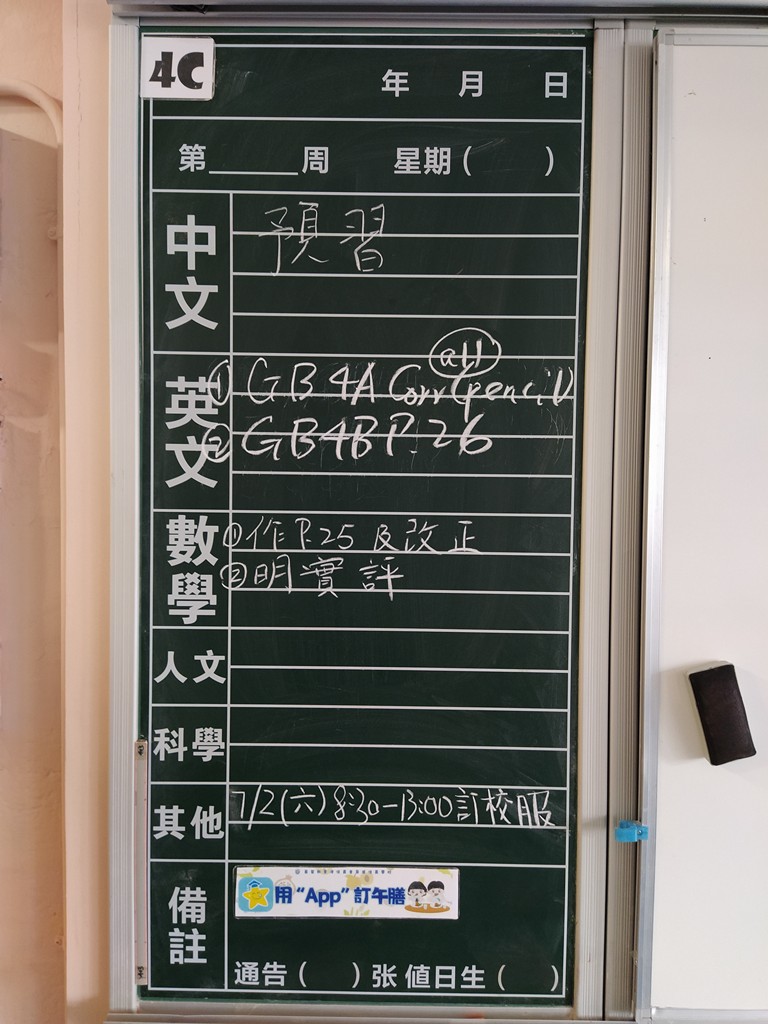 4C
年 月 日
第______周 星期( )
中文
預習
英文
① GB 4A Corr (pencil)
all
② GB4B P.26
數學
① 作 P.25 及改正
② 明實評
人文
科學
其他
7/2(六) 8:30-13:00訂校服
備註
用“App”訂午膳
通告( )张 值日生( )